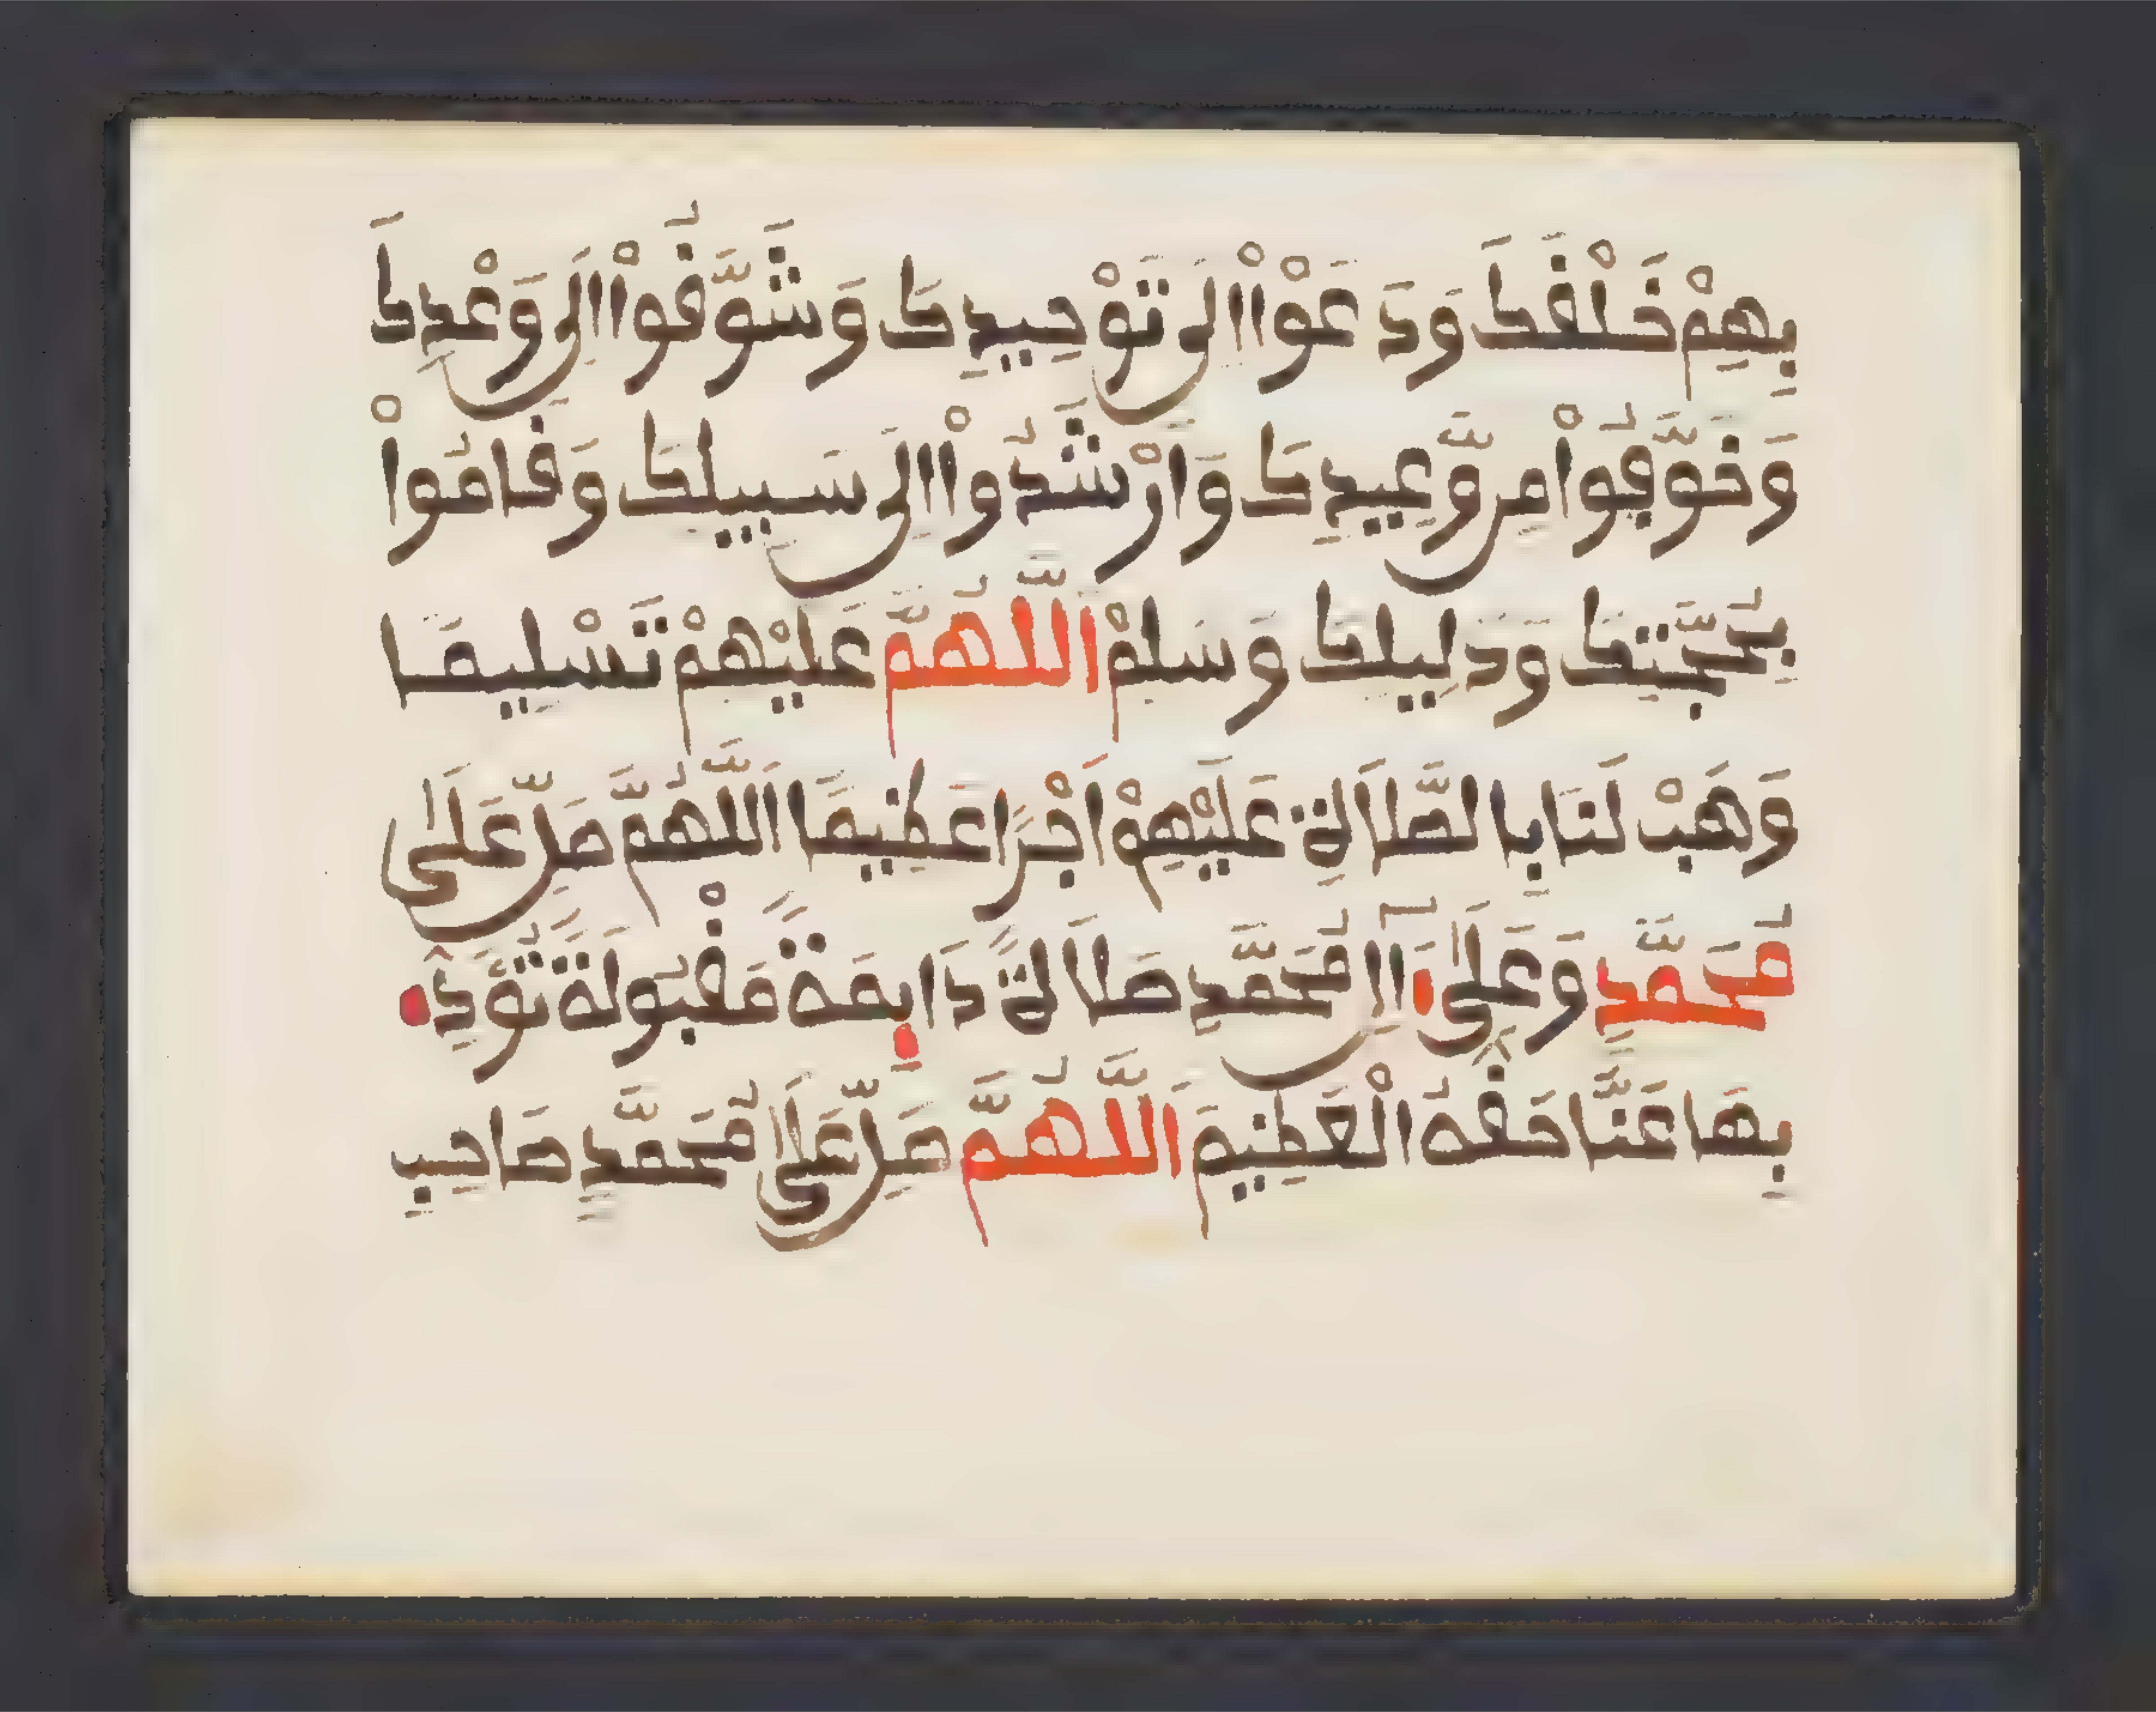 بِهِمْ خَلْفَكَ وَدَعَوْاْ اِلَى تَوْحِيدِكَ وَشَوَّفُواْ اِلَى وَعْدِكَ
وَخَوَّفُواْ مِن وَّعِيدِكَ وَاَرْشَدُواْ اِلَى سَبِيلِكَ وَفَامُواْ
بِحُجَّتِكَ وَدَلِيلِكَ وَسَلِّمْ اَللَّهُمَّ عَلَيْهِمْ تَسْلِيمًا
وَهَبْ لَنَا بِالصَّلَاةِ عَلَيْهِمْ اَجْرًا عَظِيمًا اَللَّهُمَّ صَلِّ عَلَى
مُحَمَّدٍ وَعَلَى ءَالِ مُحَمَّدٍ صَلَاةً دَايِمَةً مَفْبُولَةً تُوَدِّے
بِهَا عَنَّا حَفَّهُ الْعَظِيمَ اَللَّهُمَّ صَلِّ عَلَى مُحَمَّدٍ صَاحِبِ